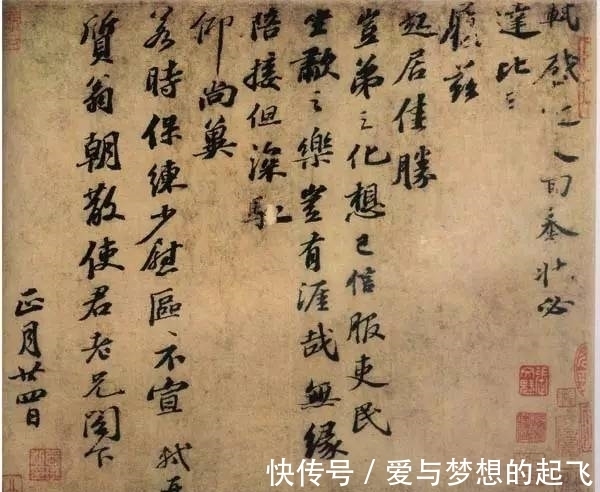 軾啓 人回奉狀必
達比
履茲
起居佳勝
豈弟之化想已信服吏民
坐嘯之樂豈有涯哉無緣
陪接但深馳
仰尚冀
若時保練少慰區々不宣 軾再
質翁朝散使君老兄閣下
正月廿四日
快传号 / 爱与梦想的起飞